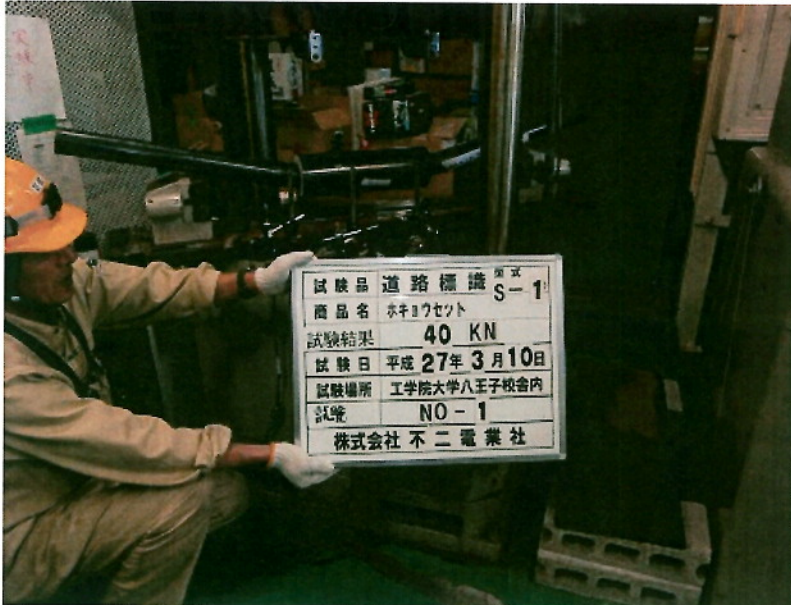 実験中
試験品 道路標識 型式 S-1
商品名 ホキョウセット
試験結果 40 KN
試験日 平成27年3月10日
試験場所 工学院大学八王子校舎内
試験 NO-1
株式会社 不二電業社